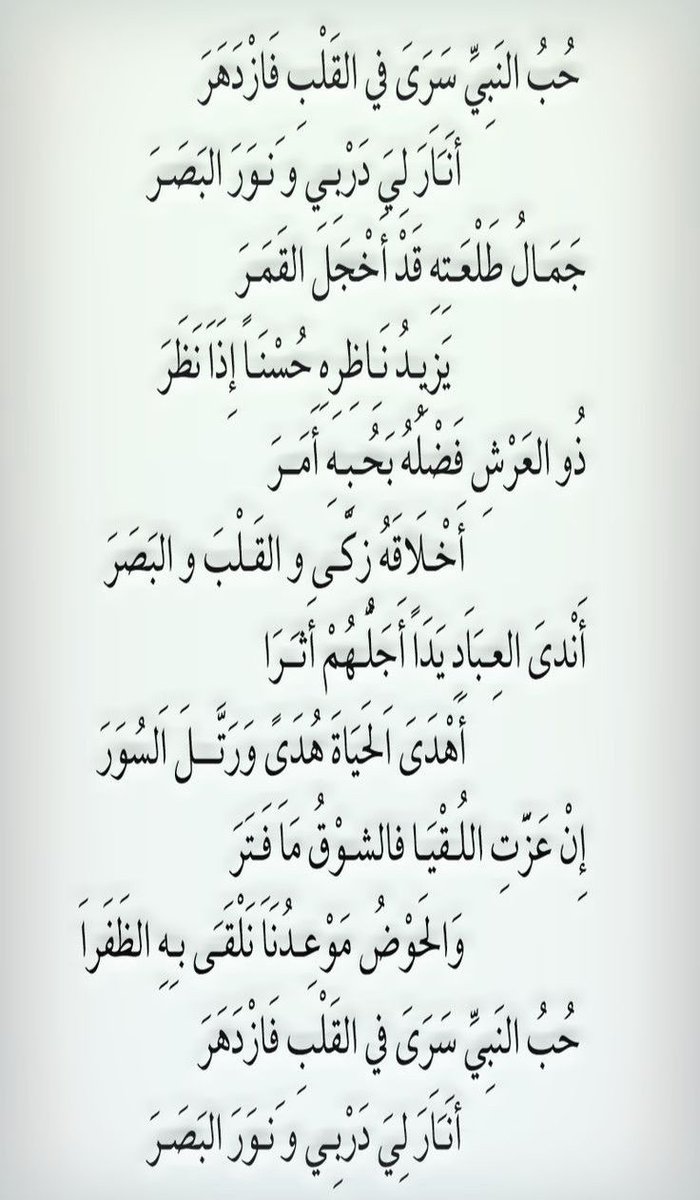 حُبُ النَبِيِّ سَرَىَ في القَلْبِ فَازْدَهَرَ
أَنَارَ لِيَ دَرْبِي و نَوَرَ البَصَرَ
جَمَالُ طَلْعَته قَدْ أَخْجَلَ القَمَرَ
يَزِيدُ نَاظِرِهِ حُسْنَاً إِذَا نَظَرَ
ذُو العَرْشِ فَضْلُهُ بَحُبِهِ أَمَرَ
أَخْلَاقَهُ زكَّى و القَلْبَ و البَصَرَ
أَنْدىَ العِبَادِ يَدَاً أَجَلُّهُمْ أَثَرَا
أَهْدَىَ اَلحَيَاةَ هُدَىً وَرَتَّلَ اَلسُوَرَ
إِنْ عَزَّتِ اللُقْيَا فالشوْقُ مَا فَتَرَ
وَالحَوْضُ مَوْعِدُنَا نَلْقَى بِهِ الظَفَراَ
حُبُ النَبِيِّ سَرَىَ في القَلْبِ فَازْدَهَرَ
أَنَارَ لِيَ دَرْبِي و نَوَرَ البَصَرَ